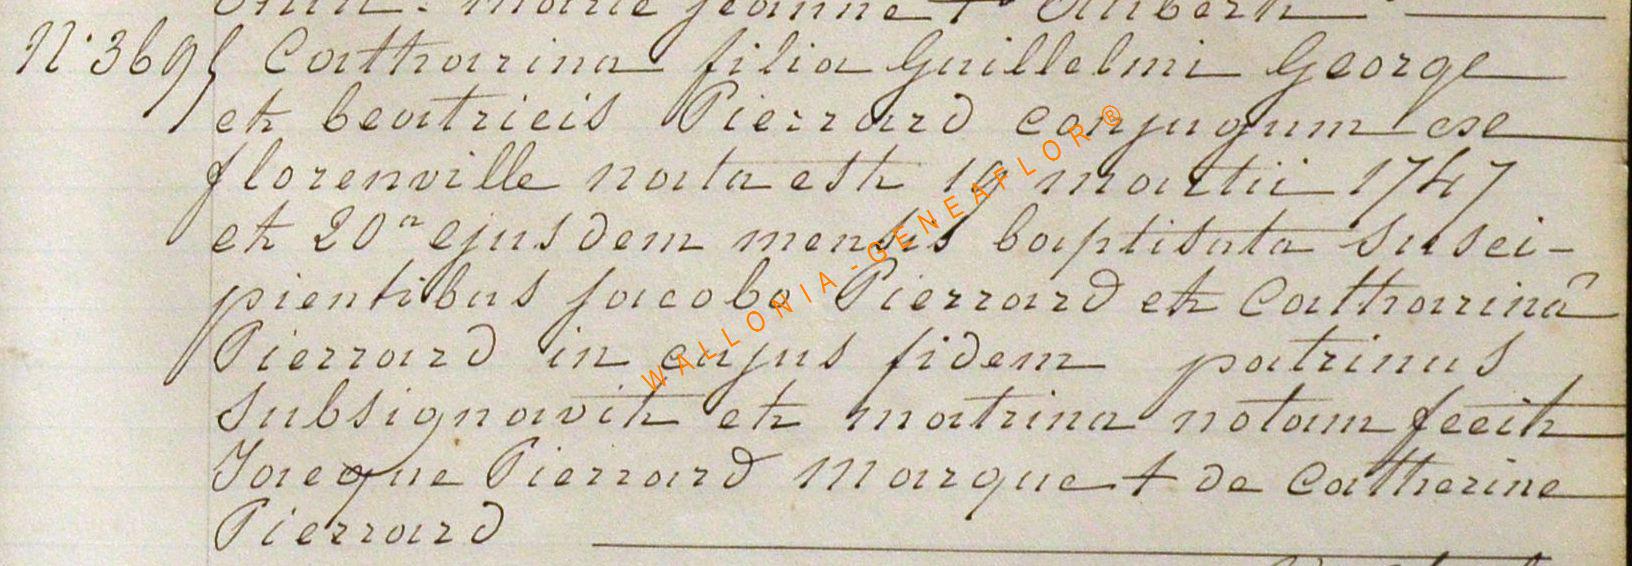 marie jeanne + Aubert
N° 369 Catharina filia Guillelmi George
et beatricis Pierrard conjugum ex
florenville nata est 19 martii 1747
et 20a ejusdem mensis baptisata susci-
pientibus jacobo Pierrard et Catharinâ
Pierrard in cujus fidem patrinus
subsignavit et matrina notam fecit
Jacque Pierrard Marque + de Catherine
Pierrard
WALLONIA-GENEAFLOR®